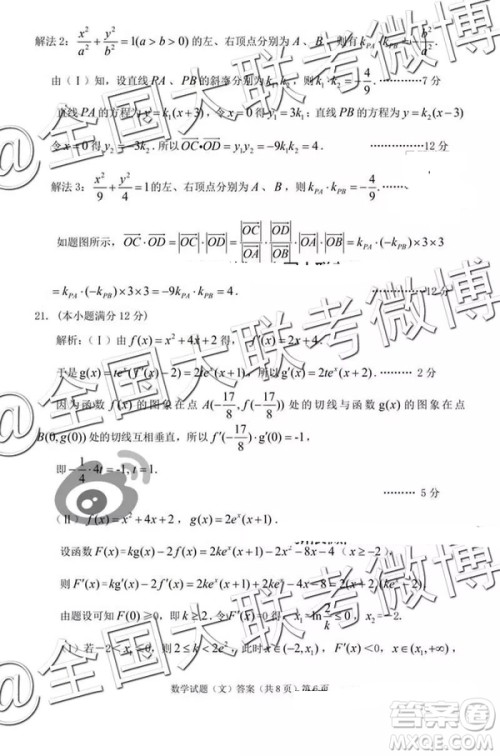 解法2：x²/a²+y²/b²=1(a>b>0)的左、右顶点分别为A、B，则有k_PA·k_PB=-b²/a².
由（Ⅰ）知，设直线PA、PB的斜率分别为k₁,k₂，则k₁·k₂=-4/9. ⋯⋯⋯7分
直线PA的方程为y=k₁(x+3)，令x=0得y₁=3k₁，直线PB的方程为y=k₂(x-3)
令x=0得y₂=-3k₂.所以OC•OD=y₁y₂=-9k₁k₂=4. ⋯⋯⋯12分
解法3：x²/9+y²/4=1的左、右顶点分别为A、B，则k_PA·k_PB=-4/9. ⋯⋯
如题图所示，OC·OD=|OC|·|OD|=|OC|/|OA|·|OD|/|OB|·|OA|·|OB|=k_PA·(-k_PB)×3×3
=k_PA·(-k_PB)×3×3=-9k_PA·k_PB=4. ⋯⋯⋯12分
21.（本小题满分12分）
解析：（Ⅰ）由f(x)=x²+4x+2得，f′(x)=2x+4.
于是g(x)=teˣ(f′(x)-2)=teˣ(2x+2)，所以g′(x)=2teˣ(x+2). ⋯⋯⋯2分
因为函数f(x)的图象在点A(-17/8,f(-17/8))处的切线与函数g(x)的图象在点
B(0,g(0))处的切线互相垂直，所以f′(-17/8)·g′(0)=-1，
即-1/4·4t=-1,t=1. ⋯⋯⋯5分
（Ⅱ）f(x)=x²+4x+2，g(x)=2eˣ(x+1)，
设函数F(x)=kg(x)-2f(x)=2keˣ(x+1)-2x²-8x-4（x≥-2），
则F′(x)=kg′(x)-2f′(x)=2keˣ(x+2)-4x-8=2(x+2)(keˣ-2).
由题设可知F(0)≥0，即k≥2，令F′(x)=0得，x₁=ln2/k，x₂=-2.
（1）若-2<x₁≤0，则2≤k<2e²，此时x∈(-2,x₁)，F′(x)<0，
数学试题（文）答案（共8页）第6页
@全国大联考微博
@全国大联考微博
@全国大联考微博
答案圈
MXEQW.COM